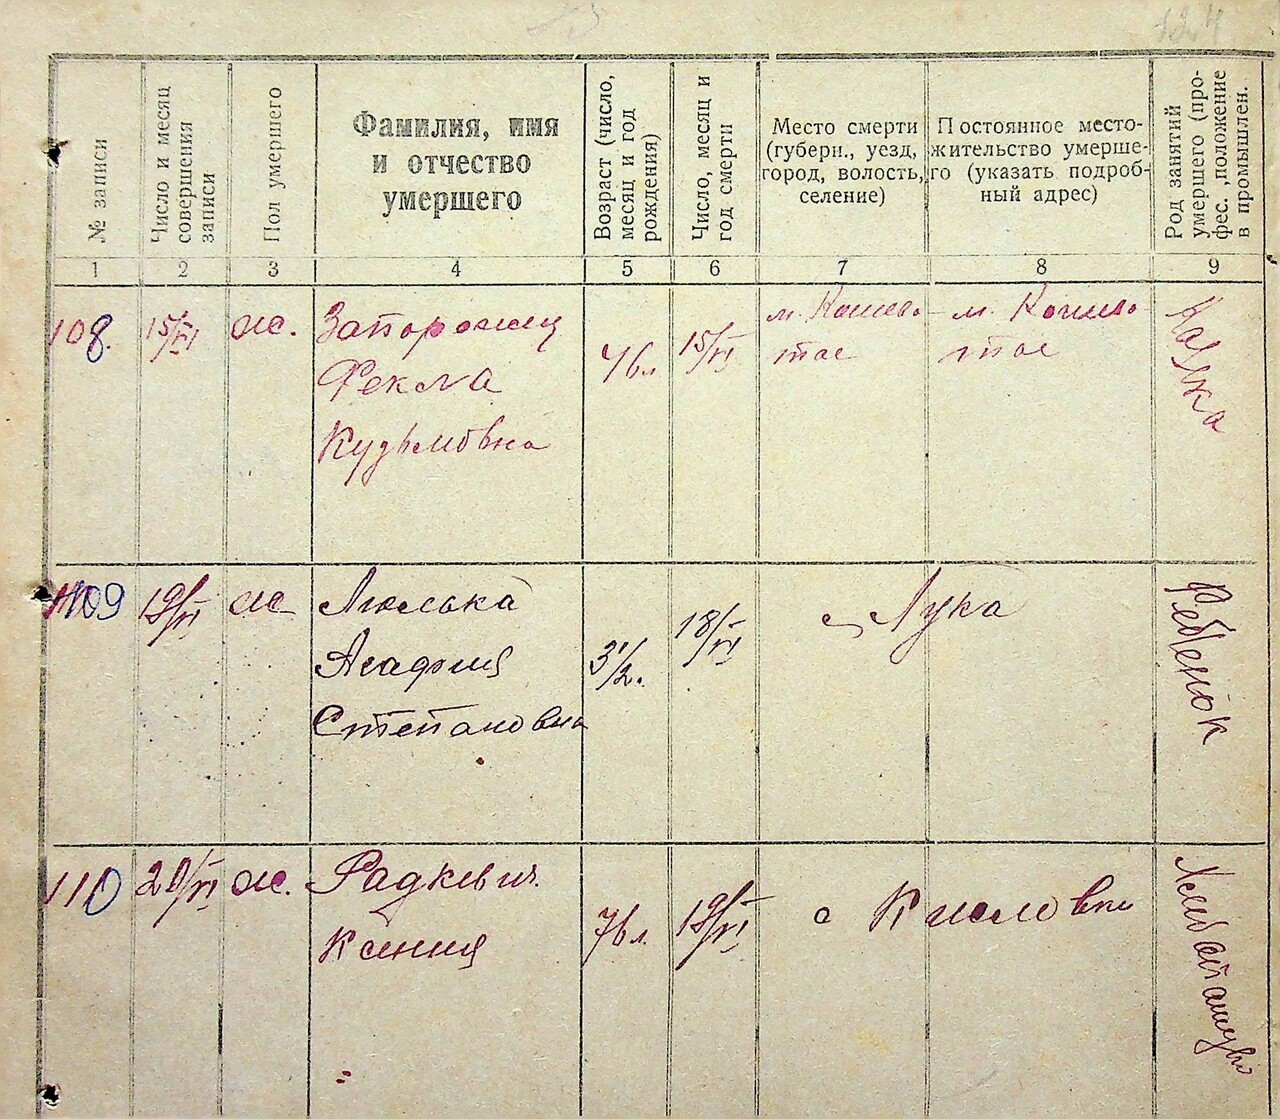 124
№ записи
Число и месяц
совершения
записи
Пол умершего
Фамилия, имя
и отчество
умершего
Возраст (число,
месяц и год
рождения)
Число, месяц и
год смерти
Место смерти
(губерн., уезд,
город, волость,
селение)
Постоянное место-
жительство умерше-
го (указать подроб-
ный адрес)
Род занятий
умершего (про-
фес., положение
в промышлен.
1 2 3 4 5 6 7 8 9
108.
15/VI
ж.
Запорожец
Фекла
Кузьмовна
76 л
15/VI
м. Кошева-
тое
м. Кошева-
тое
109
19/VI
ж
Люлька
Агафия
Степановна
3 1/2.
18/VI
с Лука
Ребенок
110
20/VI
ж.
Радкевич
Ксения
76 л.
19/VI
с Кисловки